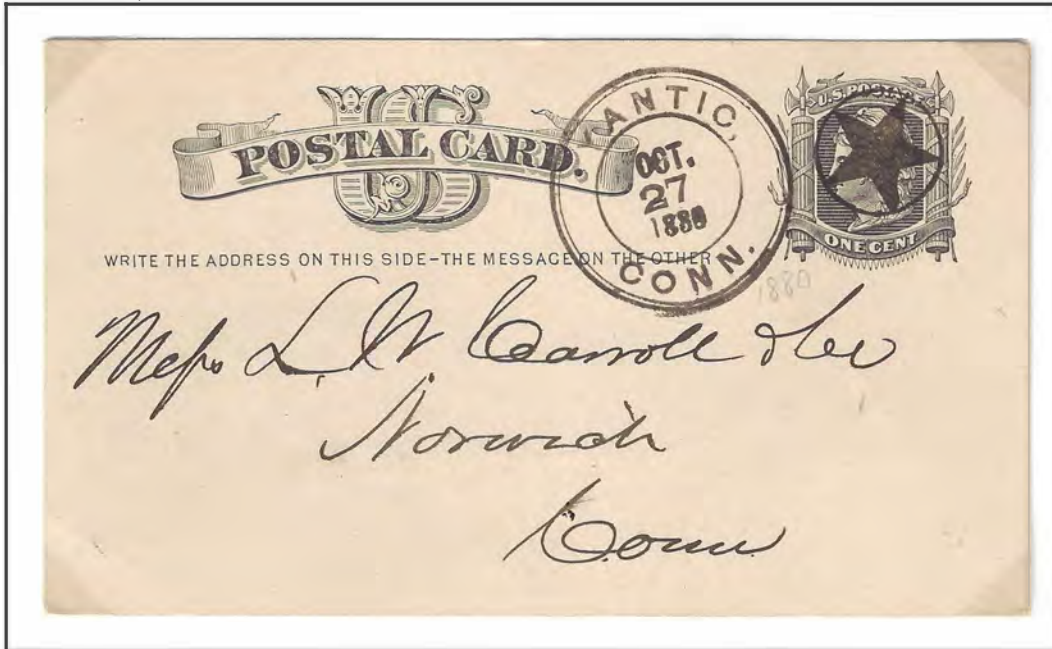 US
POSTAL CARD.
WRITE THE ADDRESS ON THIS SIDE-THE MESSAGE ON THE OTHER
ANTIC,
OCT.
27
1880
CONN.
U.S. POSTAGE
ONE CENT
1880
Messrs L. W. Carroll & Co
Norwich
Conn